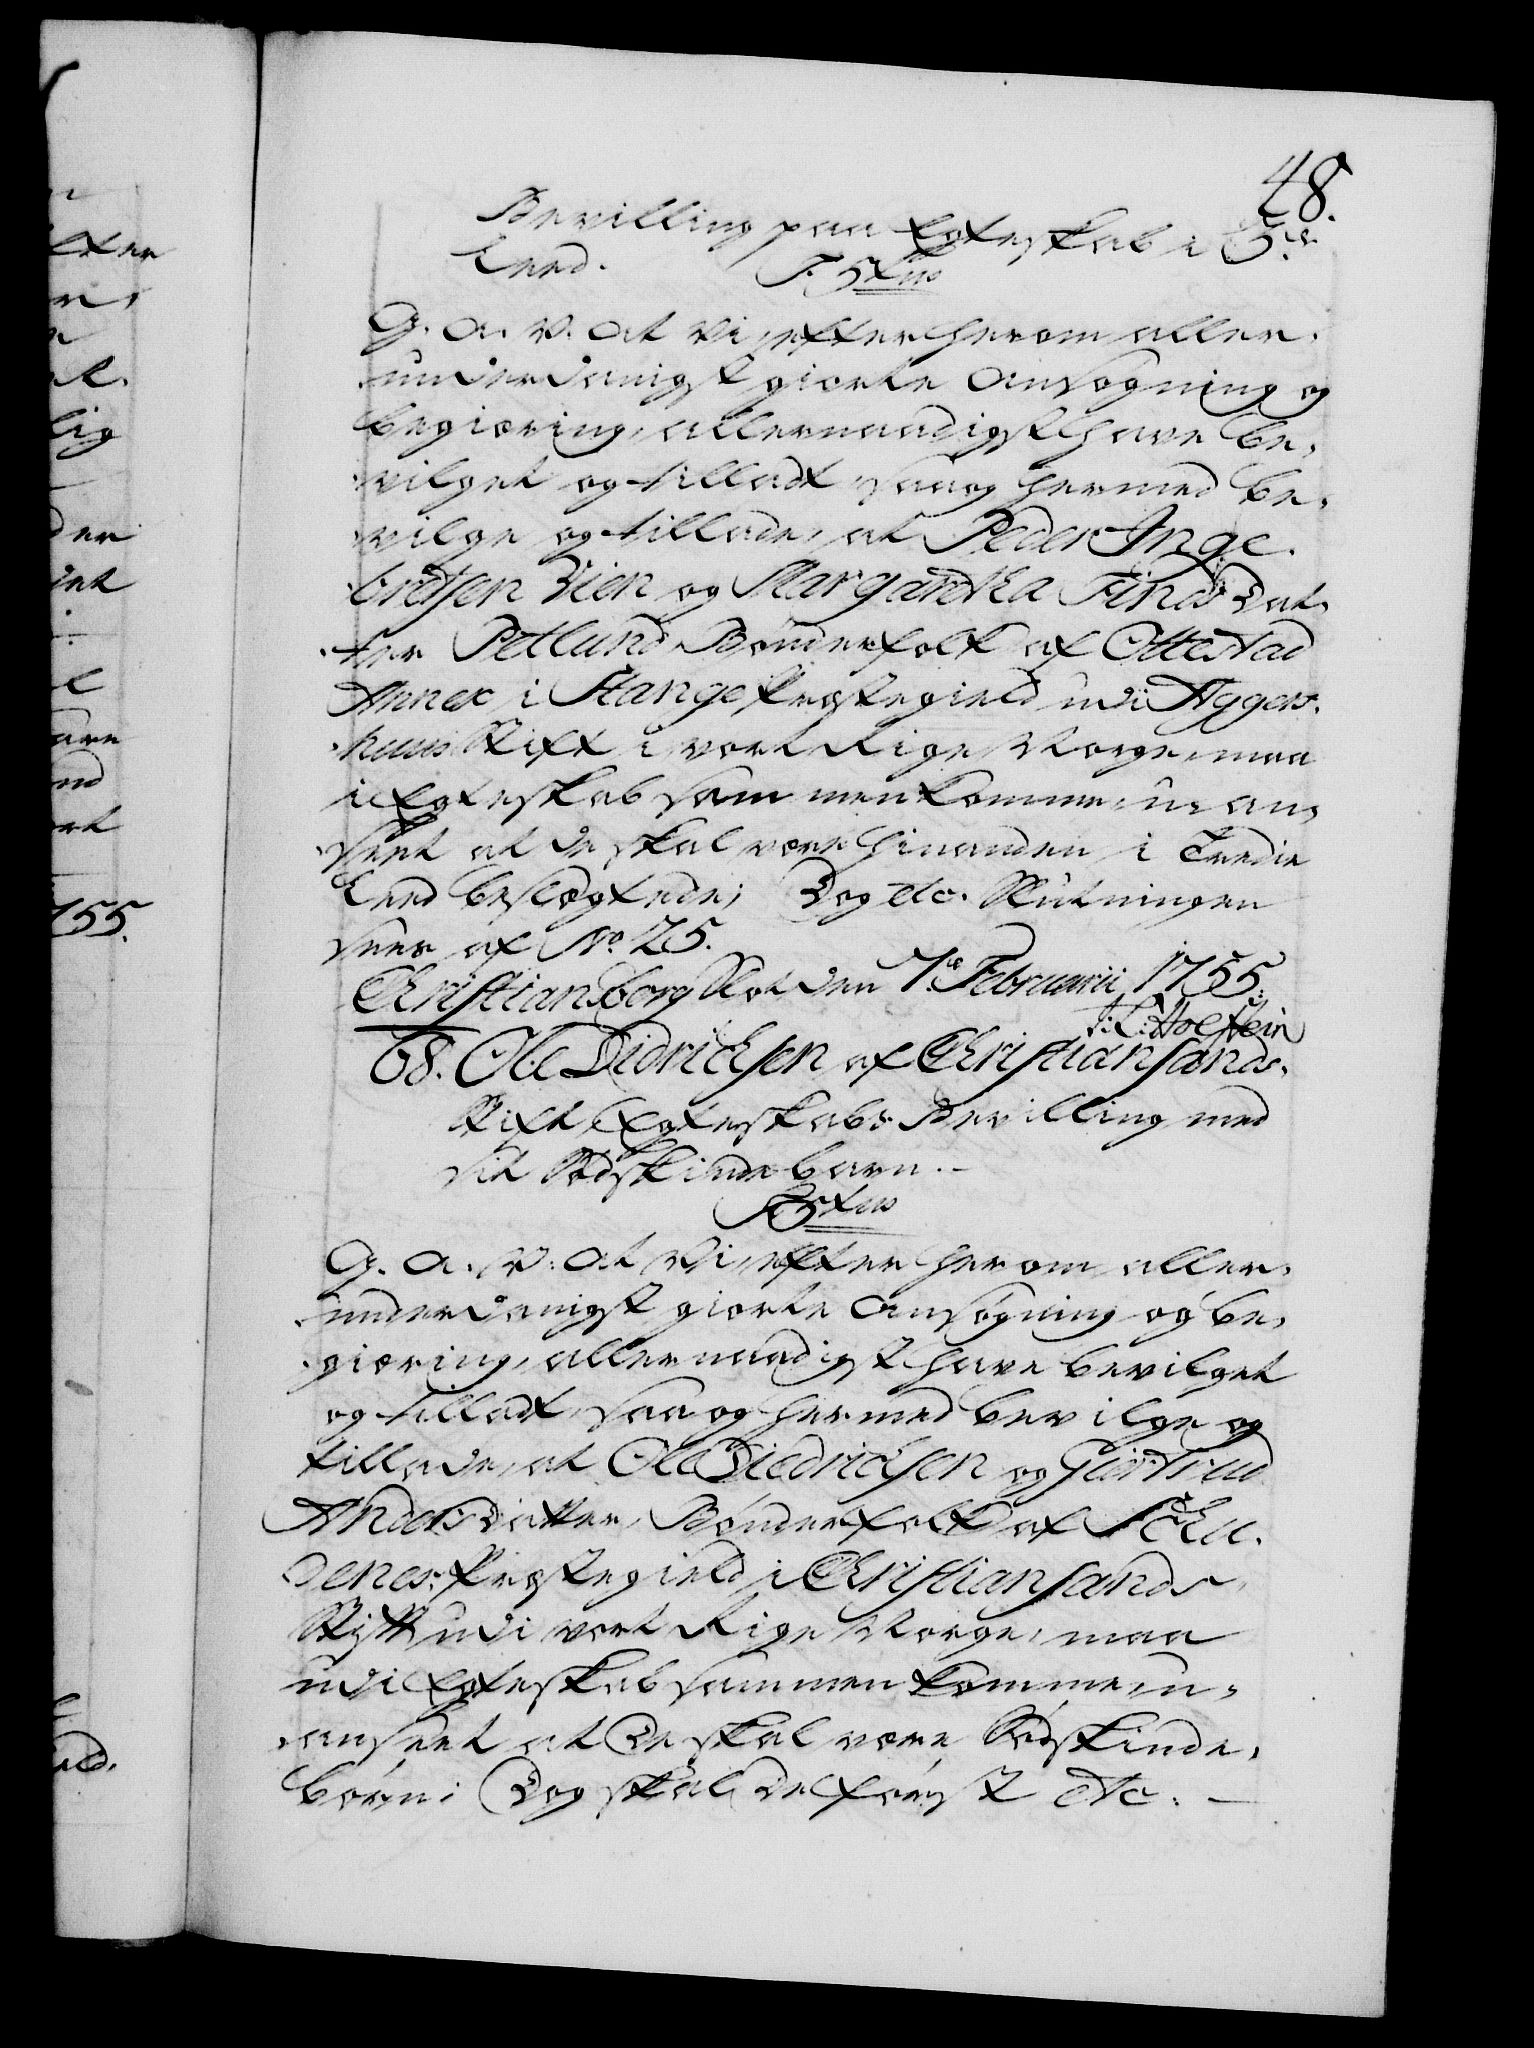 48.
Bevilling paa Egteskab i 3de
Leed. F. 5tus
G. a. V. at Vi, efter herom aller-
underdanigst giorte Ansøgning og
begiæring, allernaadigst have be-
vilget og tilladt, saa og hermed be-
vilge og tillade, at Peder Inge-
bretsen Vien og Margaretha Finds Dat-
ter Petlund, Bønderfolk af Ottestad
Annex i Stange Præstegield udi Aggers-
huus Stift i vort Rige Norge, maa
i Egteskab sammenkomme, uan-
seet at de skal være hinanden i Tredie
Leed beslægtede; Dog etc. Slutningen
sees af No. 25.
Christiansborg Slot den 7de Februarii 1755.
J. L. Holstein
68. Ole Didrichsen af Christiansands-
Stift, Egteskabs Bevilling med
sit Sødskindebarn. -
F 5tus
G. a. V. at Vi, efter herom aller-
underdanigst giorte Ansøgning og be-
giæring, allernaadigst have bevilget
og tilladt, saa og hermed bevilge og
tillade, at Ole Diedrichsen og Giertrud
Andersdatter, Bønderfolk af
Præstegield i Christiansands-
Stift udi vort Rige Norge, maa
udi Egteskab sammenkomme, u-
anseet at de skal være Sødskinde-
børn; Dog skal de først etc. -